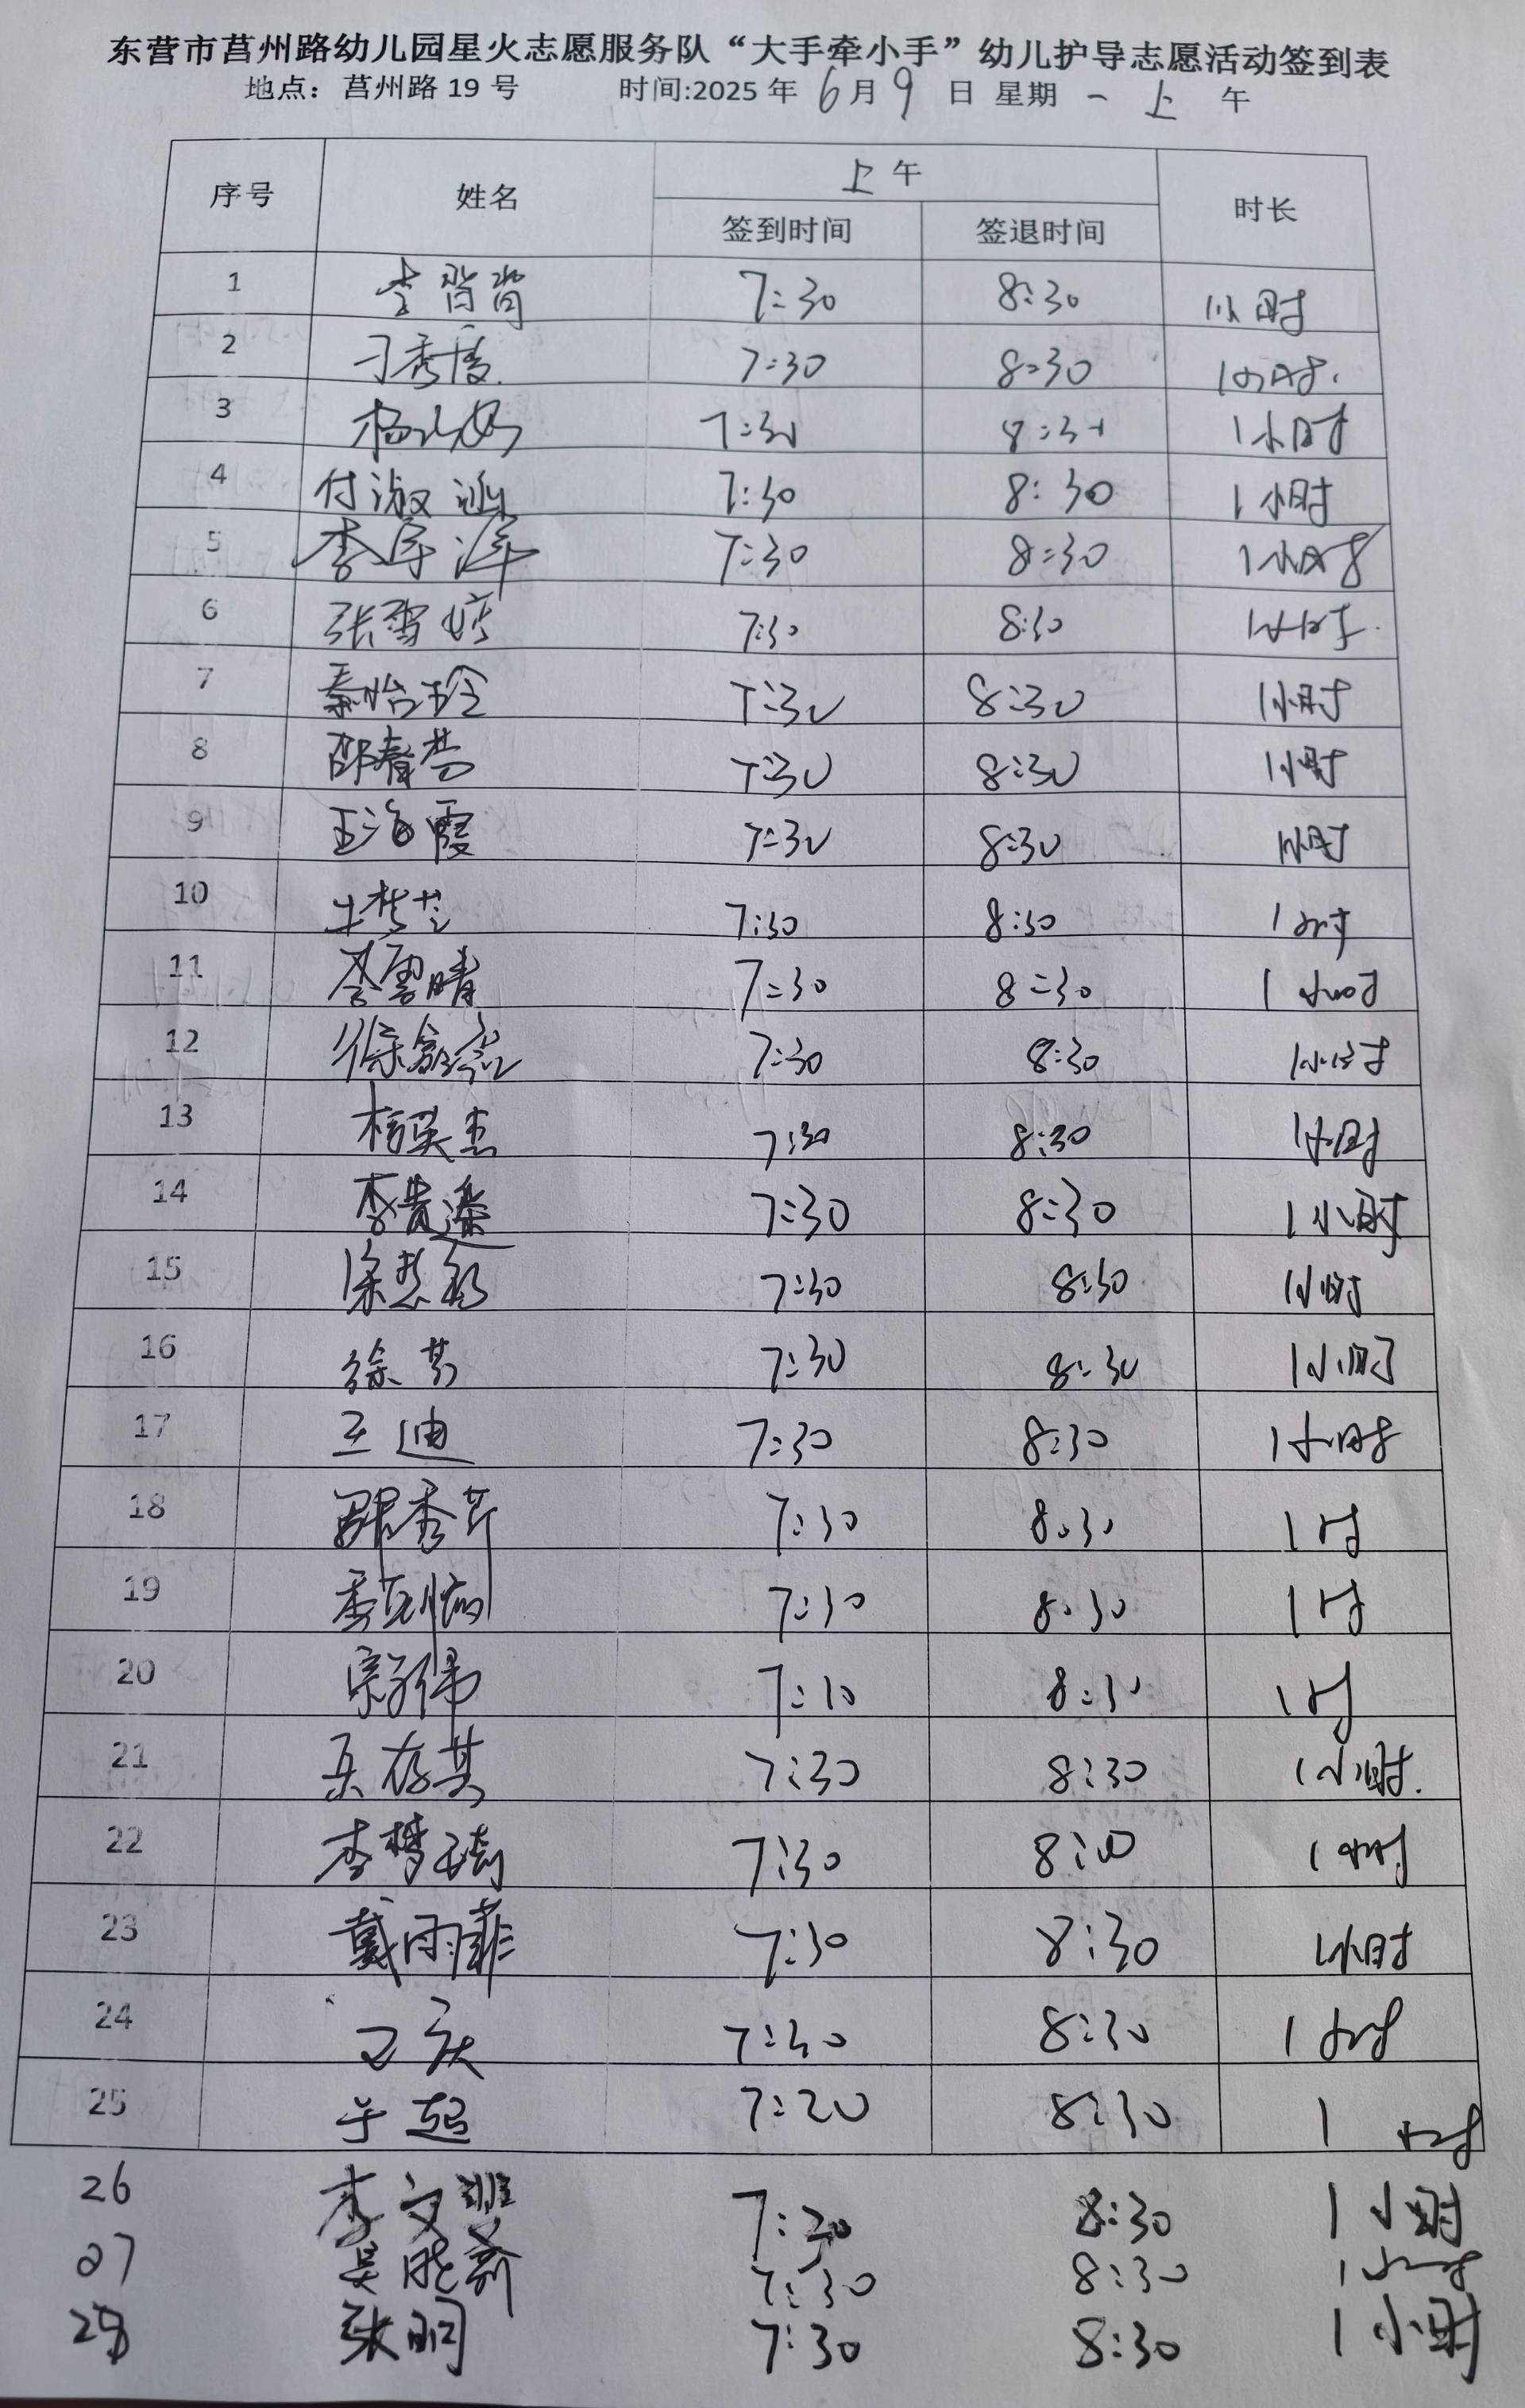 东营市莒州路幼儿园星火志愿服务队“大手牵小手”幼儿护导志愿活动签到表
地点：莒州路 19 号 时间:2025 年 6 月 9 日 星期 一 上 午
序号 姓名 上午 时长
签到时间 签退时间
1 李肖肖 7:30 8:30 1小时
2 刁秀霞 7:30 8:30 1小时
3 7:30 8:30 1小时
4 付淑涵 7:30 8:30 1小时
5 李 7:30 8:30 1小时
6 张雪婷 7:30 8:30 1小时
7 秦怡玲 7:30 8:30 1小时
8 邵春芳 7:30 8:30 1小时
9 王海霞 7:30 8:30 1小时
10 7:30 8:30 1小时
11 李雪晴 7:30 8:30 1小时
12 徐 7:30 8:30 1小时
13 杨英杰 7:30 8:30 1小时
14 李贵 7:30 8:30 1小时
15 徐 7:30 8:30 1小时
16 徐芳 7:30 8:30 1小时
17 王迪 7:30 8:30 1小时
18 秀芹 7:30 8:30 1时
19 7:30 8:30 1时
20 宗伟 7:30 8:30 1时
21 存其 7:30 8:30 1小时
22 李梦琦 7:30 8:30 1小时
23 戴雨菲 7:30 8:30 1小时
24 7:30 8:30 1小时
25 于超 7:20 8:30 1小时
26 李文 7:30 8:30 1小时
27 吴晓 7:30 8:30 1小时
28 张明 7:30 8:30 1小时